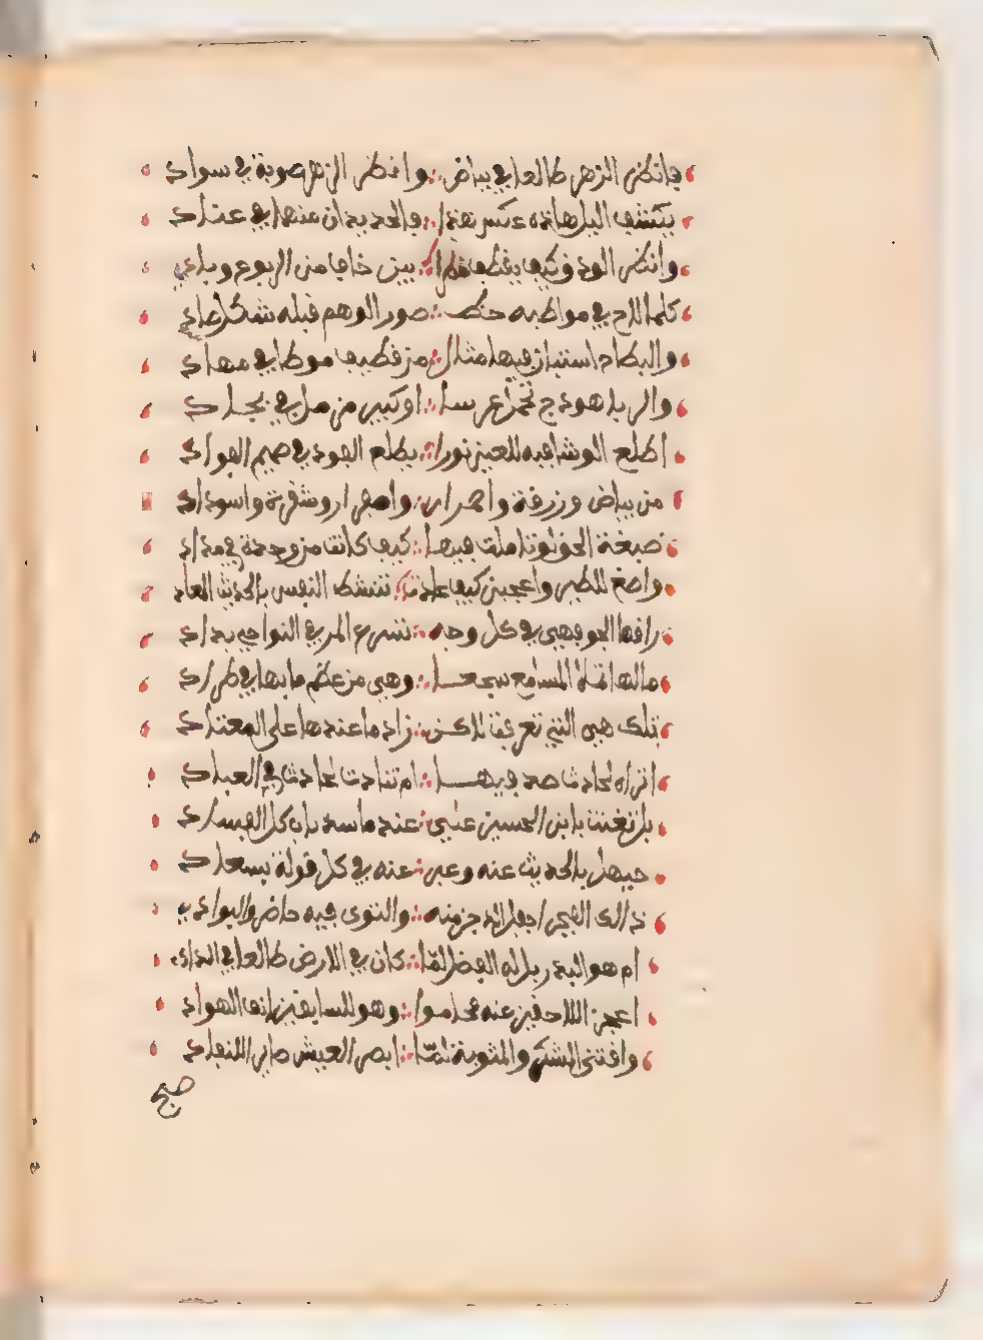 فانظر الزهر طالعا في بياض ∴ وانظر الزهر ضوءه في سواد
يكشف اليل هاذه عكس هذا ∴ فالجديدان منهما في عناد
وانظر الودق كيف يقطف ∴ بين خاف من الربوع وباد
كلما لاح في مواطيه خط ∴ صور الوهم قبله شكل صاد
والبطاح استبان فيها مثال ∴ من قطيف موطإ في مهاد
والربا هودج ∴ او كبير من في بجاد
اطلع الوشي فيه للعين نورا ∴ يطلع الجود في صميم الفواد
من بياض وزرقة واحمرار ∴ واصفرار وشقرة واسوداد
صبغة الحق لو تاملت فيها ∴ كيف كانت من وحدة في مداد
واصغ للطير واعجبن كيف عادت ∴ تنشط النفس بالحديث المعاد
راقها الجو فهي في كل وجه ∴ تسرع المر في النواحي
مالها تملأ المسامع سجعا ∴ وهي من عظم ما بها في طراد
تلك هي التي تعرفت لاكن ∴ زاد ما عندها على المعتاد
اتراه لحادث صح فيها ∴ ام تنادت لحادث في العباد
بل تغنت بابن الحسين علي ∴ عند ما سد باب كل الفساد
حيهل بالحديث عنه وعبر ∴ عنه في كل قولة بسعاد
ذالك الفجر ∴ والتوى فيه حاضر والبوادي
ام هو البدر بل له الفضل لما ∴ كان في الارض طالعا في الدادي
اعجز اللاحقين عنه فحاموا ∴ وهو للسابقين انف الهواد
واقتنى الشكر والمثوبة لما ∴ ابصر العيش صاير للنفاد
صح